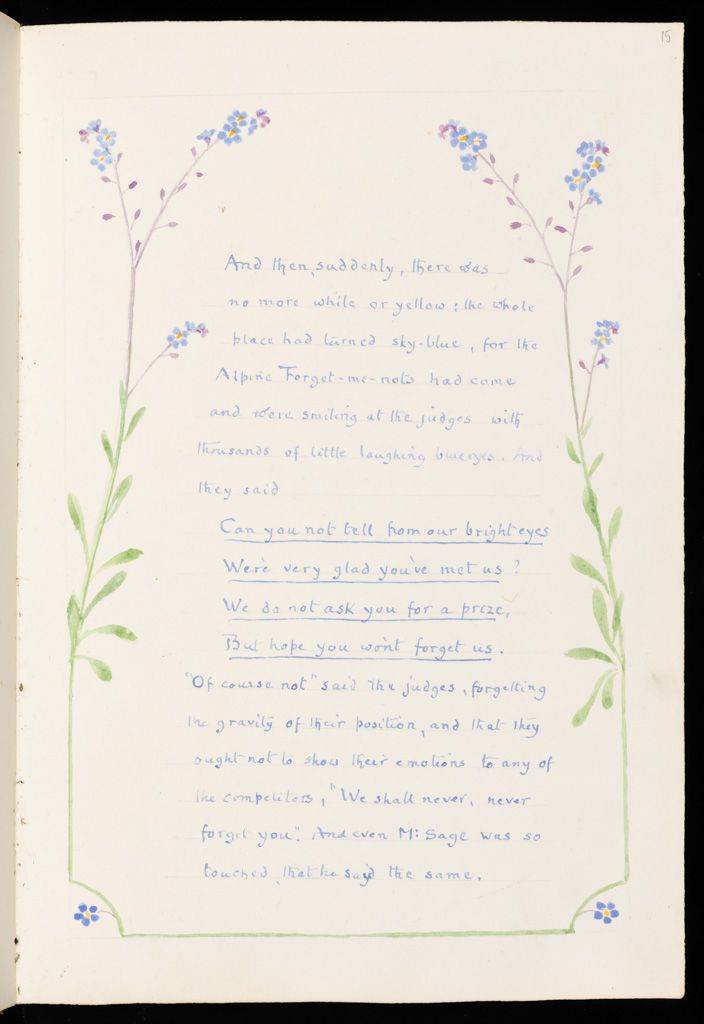 15
And then, suddenly, there was
no more white or yellow : the whole
place had turned sky-blue, for the
Alpine Forget-me-nots had come
and were smiling at the judges with
thousands of little laughing blue eyes. And
they said
Can you not tell from our bright eyes
We're very glad you've met us ?
We do not ask you for a prize,
But hope you won't forget us.
"Of course not" said the judges, forgetting
the gravity of their position, and that they
ought not to show their emotions to any of
the competitors, "We shall never, never
forget you". And even Mr Sage was so
touched that he said the same.